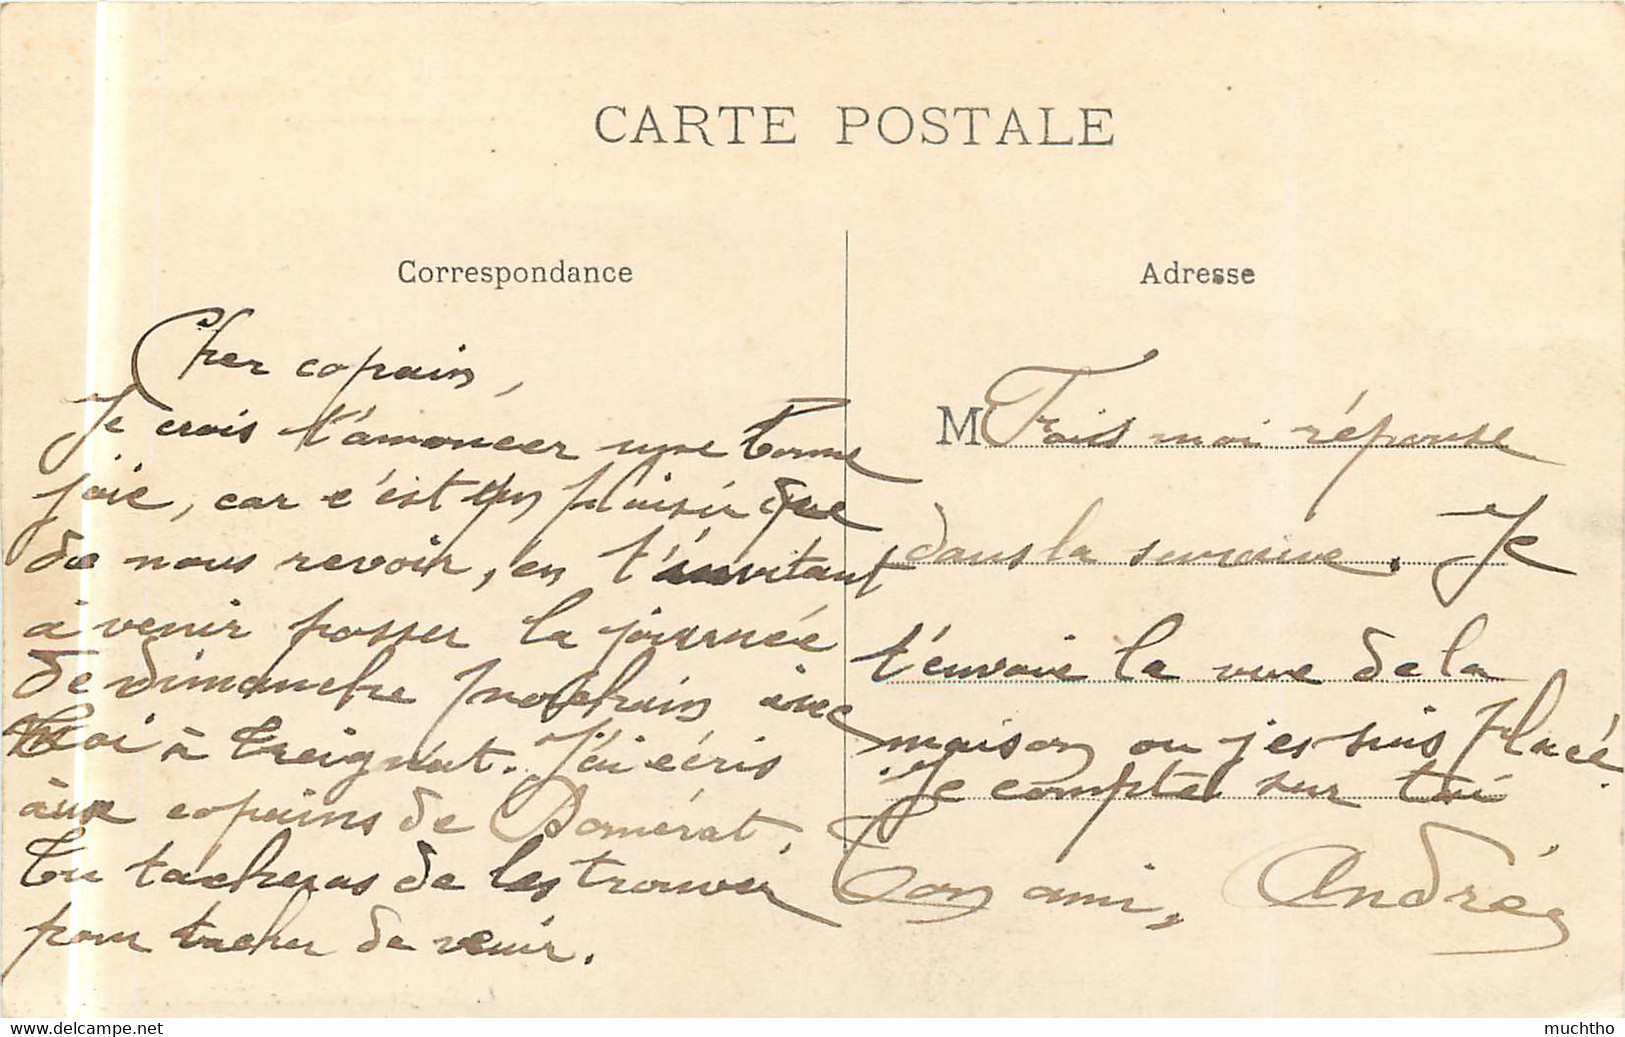 CARTE POSTALE
Correspondance
Cher copain,
Je crois t'amoncer une bonne
joie, car c'est un plaisir que
de nous revoir, en t'invitant
à venir passer la journée
de dimanche prochain avec
moi à Treignat. J'ai écris
aux copains de Domérat,
Tu tacheras de les trouver
pour tacher de venir.
Adresse
M Fais moi réponse
dans la semaine. Je
t'envoie la vue de la
maison ou je suis placé.
Je compte sur toi
Ton ami, André
www.delcampe.net
muchtho